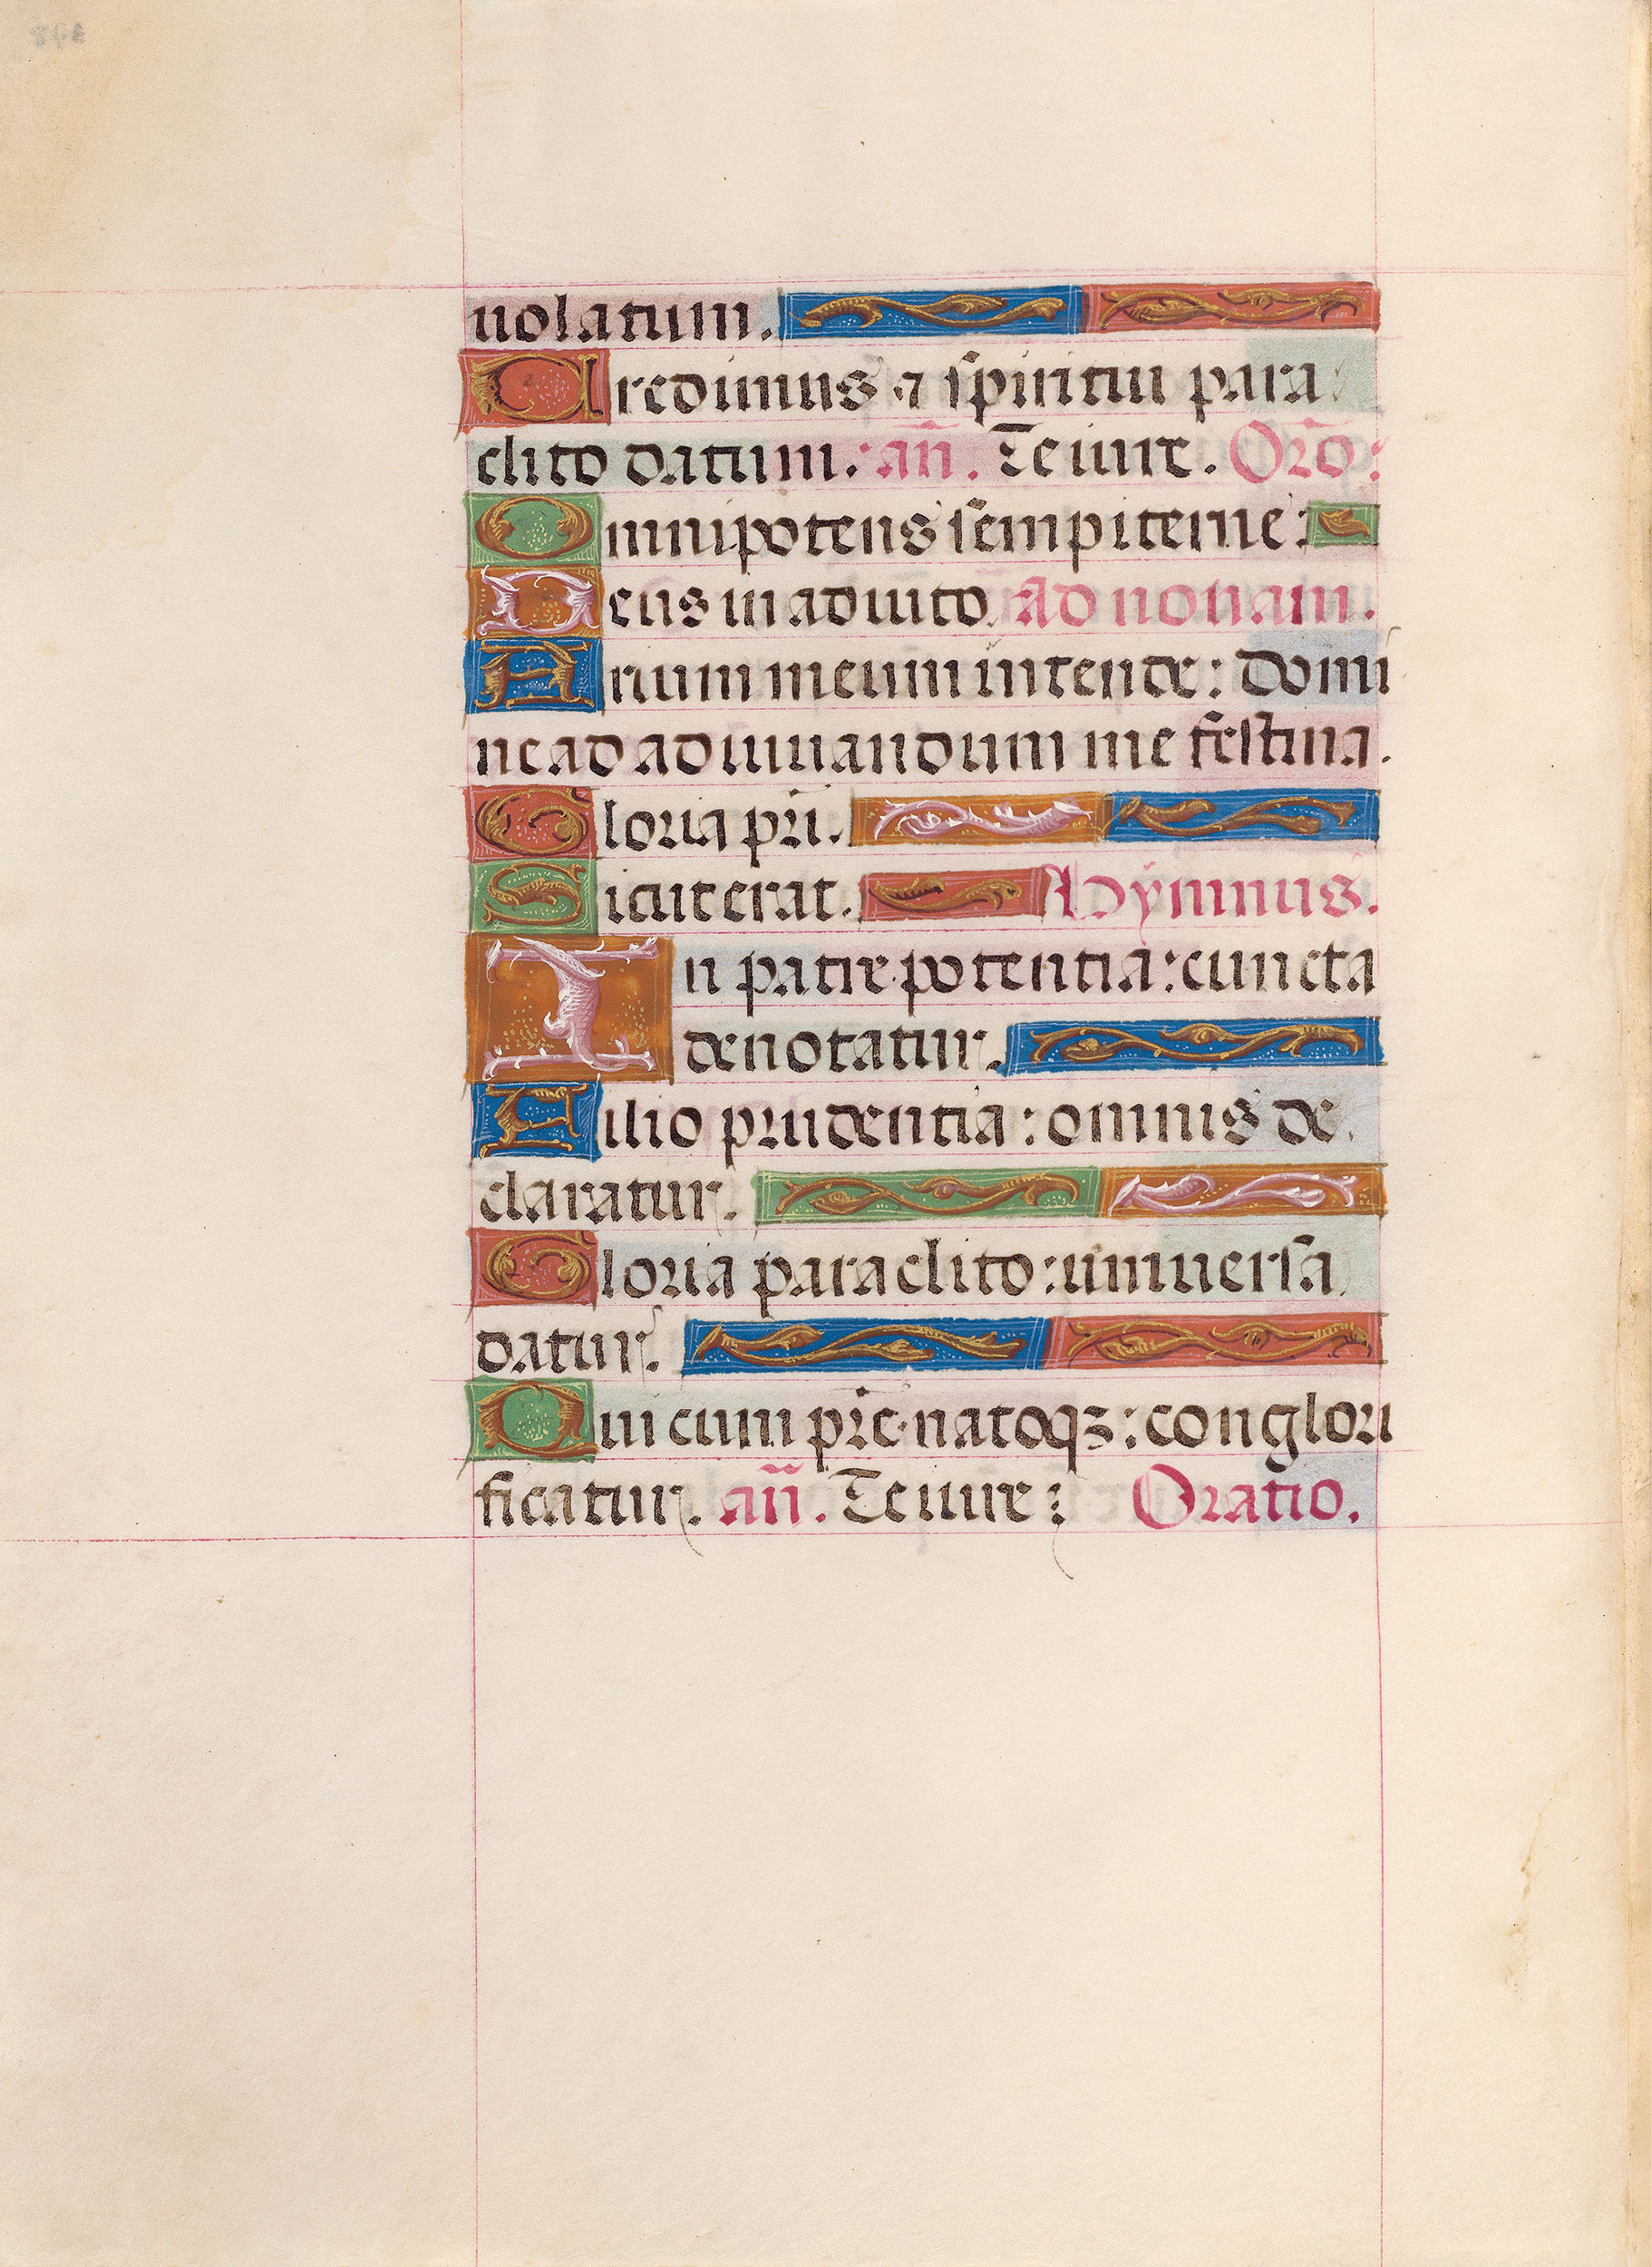 uolatum.
Credimus ⁊ spiritui para
clito datum: an̄. Te iure. Or̄o:
Omnipotens sempiterne:
Deus in adiuto. Ad nonam.
Arium meum intende: domi
ne ad adiuuandum me festina.
Gloria pr̄i.
Sicut erat. Hymnus.
In patre potentia: cuncta
denotatur.
Filio prudentia: omnis de
claratur.
Gloria paraclito: uniuersa
datur.
Qui cum pr̄e natoqꝫ: conglori
ficatur. an̄. Te iure: Oratio.